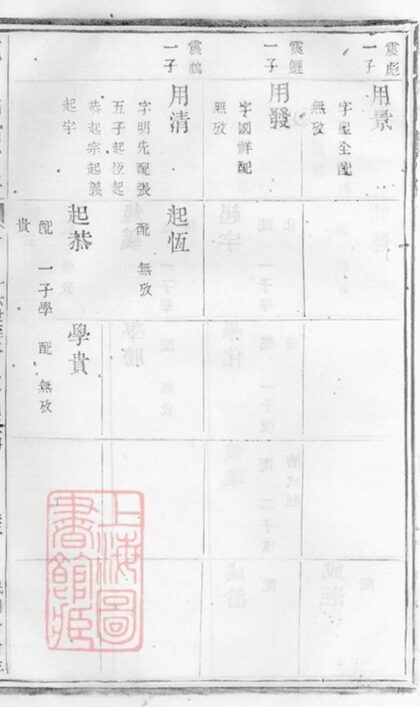 震彪
一子
用景
字聖全配
無攷
震鯉
一子
用發
字國祥配
無攷
震鶴
一子
用清
字明先配張
五子起恆起
恭起宗起義
起宇
起恆
配 無攷
起恭
配 一子學
貴
學貴
配 無攷
上海圖
書館藏